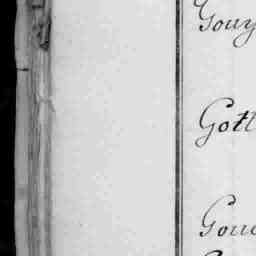 Gouy
Gott
Goue